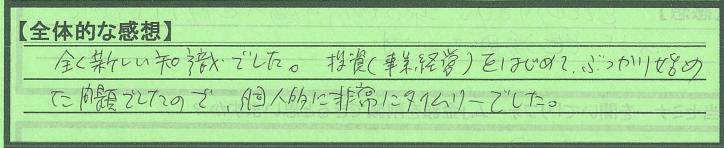 【全体的な感想】
全く新しい知識でした。投資(事業経営)をはじめて、ぶつかり始め
た問題でしたので、個人的に非常にタイムリーでした。